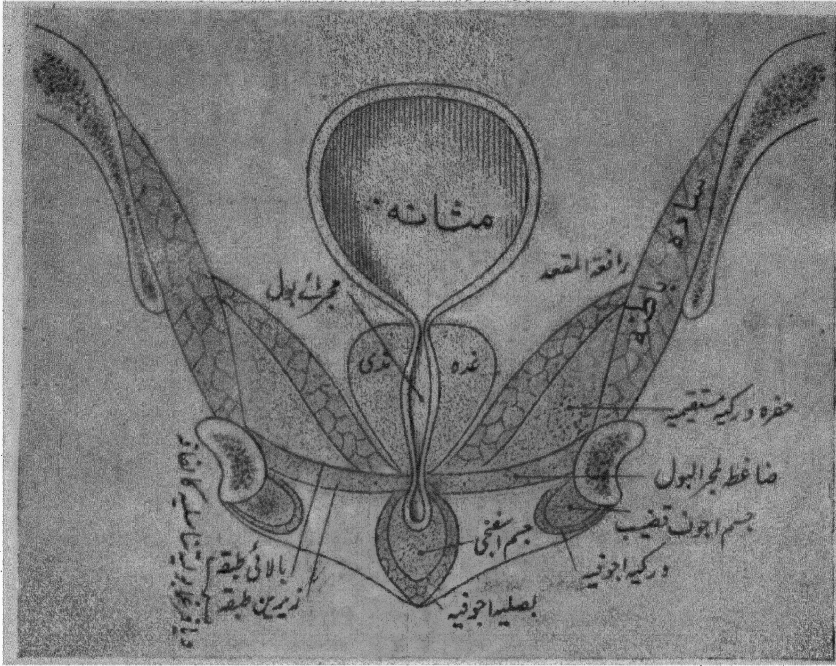 مثانہ
سادہ باطنہ
رافعۃ المقعد
مجرائے بول
غدہ
مذی
حفرہ ورکیہ مستقیمیہ
ضاغط لمجر البول
جسم اجوف قضیب
ورکیہ اجوفیہ
جسم اسفنجی
بصلیہ اجوفیہ
بالائی طبقہ
زیریں طبقہ